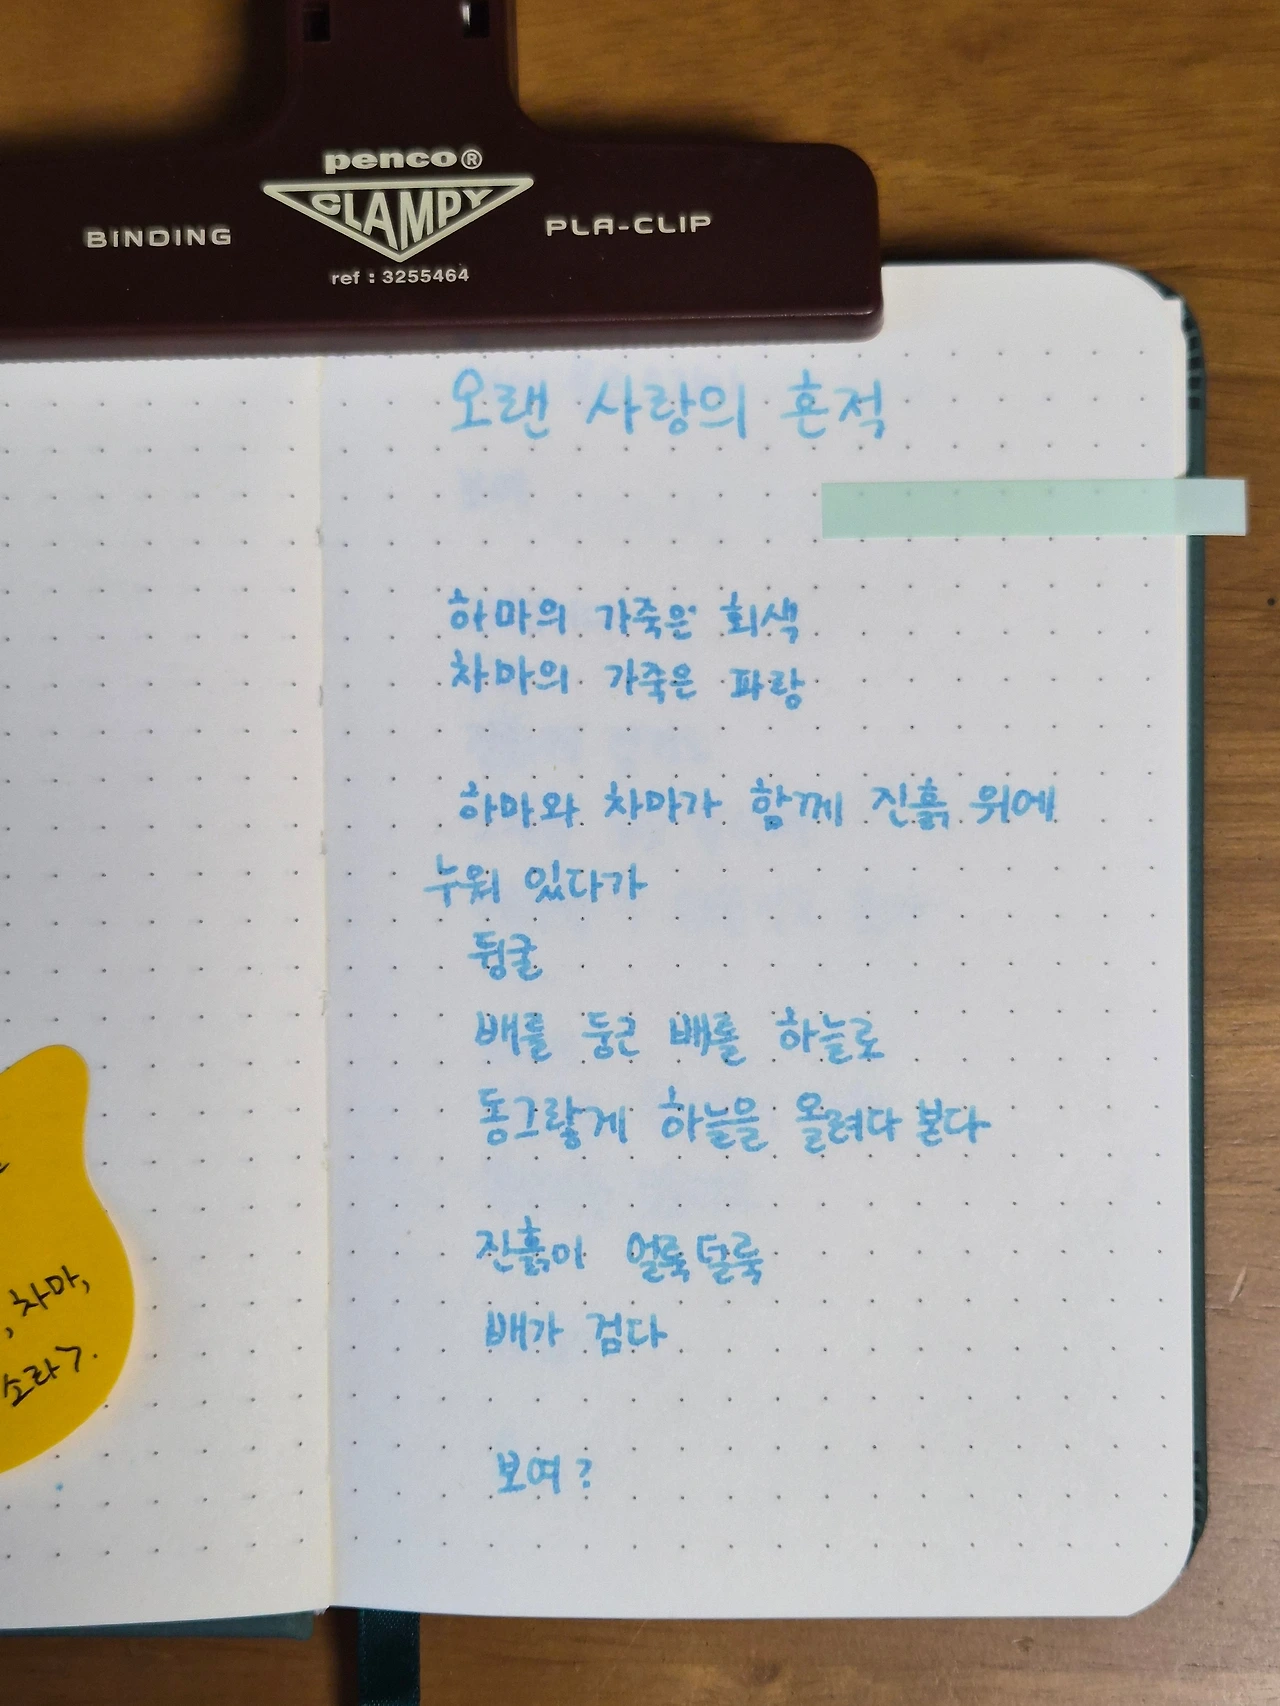 penco®
CLAMPY
BINDING
PLA-CLIP
ref : 3255464
오랜 사랑의 흔적
하마의 가죽은 회색
차마의 가죽은 파랑
하마와 차마가 함께 진흙 위에
누워 있다가
뒹굴
배를 둥근 배를 하늘로
동그랗게 하늘을 올려다 본다
진흙이 얼룩덜룩
배가 검다
보여?
, 차마,
소라>.